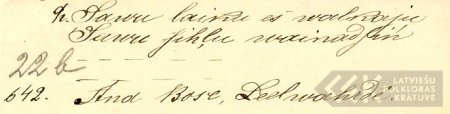 9. Sawu laimi es walkaju
Sawu sihļu wainadziņ'
22b — — — — —
642. And Bose, Leelwahrde.
LATVIEŠU
FOLKLORAS
KRĀTUVE